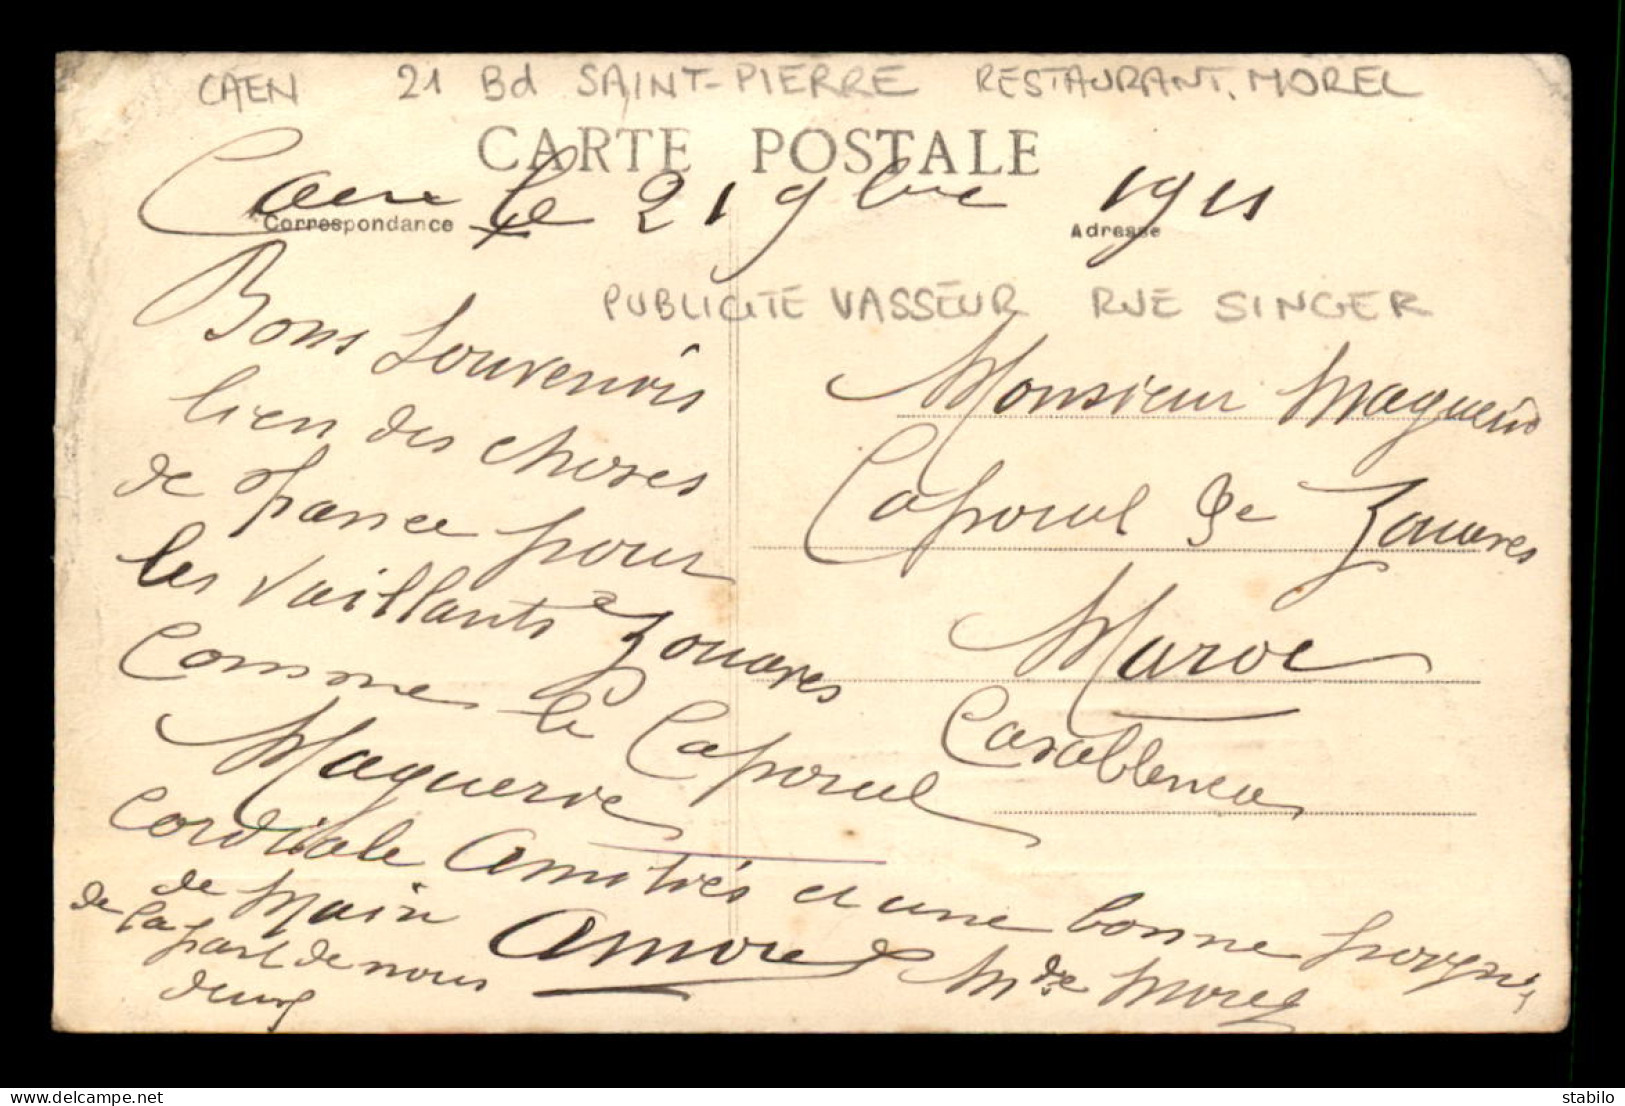 CAEN 21 Bd SAINT-PIERRE RESTAURANT. MOREL
CARTE POSTALE
Caen le 21 9bre 1911
Correspondance
Adresse
PUBLICITE VASSEUR RUE SINGER
Bons Souvenirs
bien des choses
de france pour
les vaillants Zouaves
Comme le Caporal
Maguerie
Cordiale Amitiés et une bonne poignés
de main
de la part de nous
deux
Mde Morel
Monsieur Maguerie
Caporal Zouaves
Maroc
Casablanca
delcampe.net
stabilo